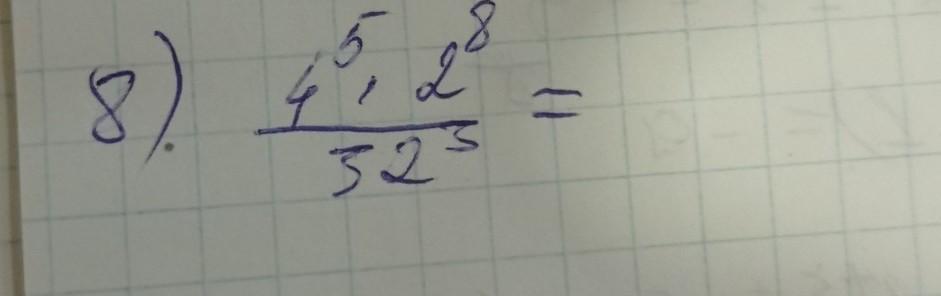 8). 4⁵ · 2⁸ / 32³ =